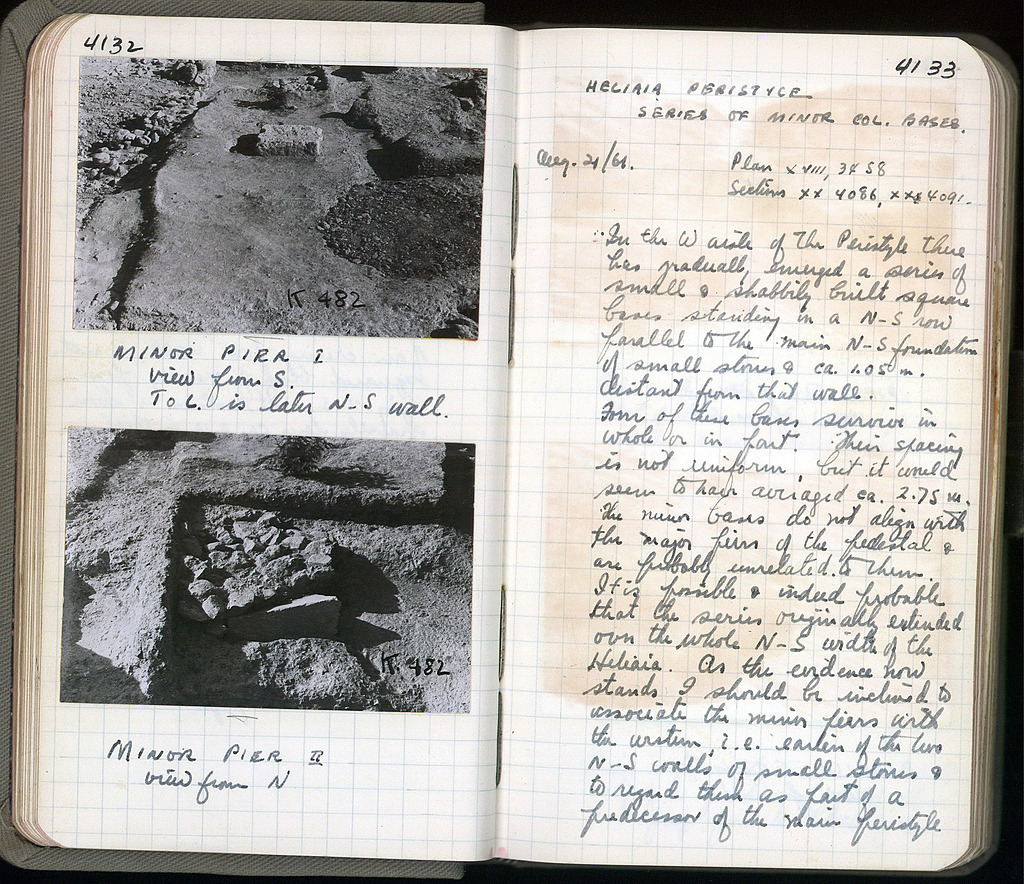 4132
K 482
MINOR PIER I
view from S.
To L. is later N-S wall.
K 482
MINOR PIER II
view from N
4133
HELIAIA PERISTYLE
SERIES OF MINOR COL. BASES.
Aug. 21/61.
Plan XVIII, 3458
Sections XX 4086, XXX 4091.
In the W aisle of the Peristyle there
has gradually emerged a series of
small & shabbily built square
bases standing in a N-S row
parallel to the main N-S foundation
of small stones & ca. 1.05 m.
distant from that wall.
Four of these bases survive in
whole or in part. Their spacing
is not uniform, but it would
seem to have averaged ca. 2.75 m.
The minor bases do not align with
the major piers of the pedestal &
are probably unrelated to them.
It is possible & indeed probable
that the series originally extended
over the whole N-S width of the
Heliaia. As the evidence now
stands I should be inclined to
associate the minor piers with
the western, i.e. earlier of the two
N-S walls of small stones &
to regard them as part of a
predecessor of the main peristyle